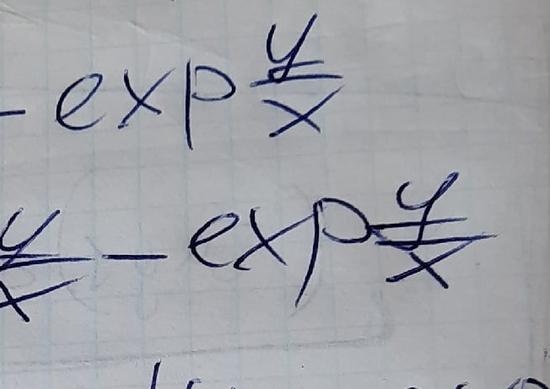 - exp y/x
y/x - exp y/x